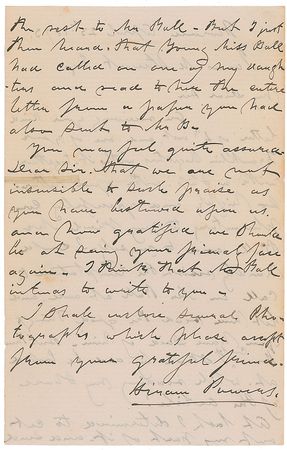 the rest to Mr Ball - But I just
then heard that Young Miss Ball
had called on one of my daugh
ters and read to her the entire
letter from a paper you had
also sent to Mr B.
You may feel quite assured
Dear Sir. that we are not
insensible to such praise as
you have bestowed upon us.
and how gratified we should
be at seeing your friendly face
again - I think that Mr Ball
intends to write to you -
I shall enclose several Pho-
tographs which please accept
from your grateful friend.
Hiram Powers.